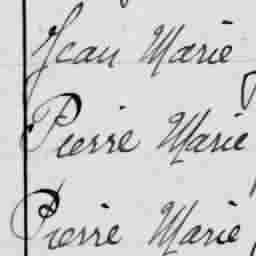 Jean Marie
Pierre Marie
Pierre Marie